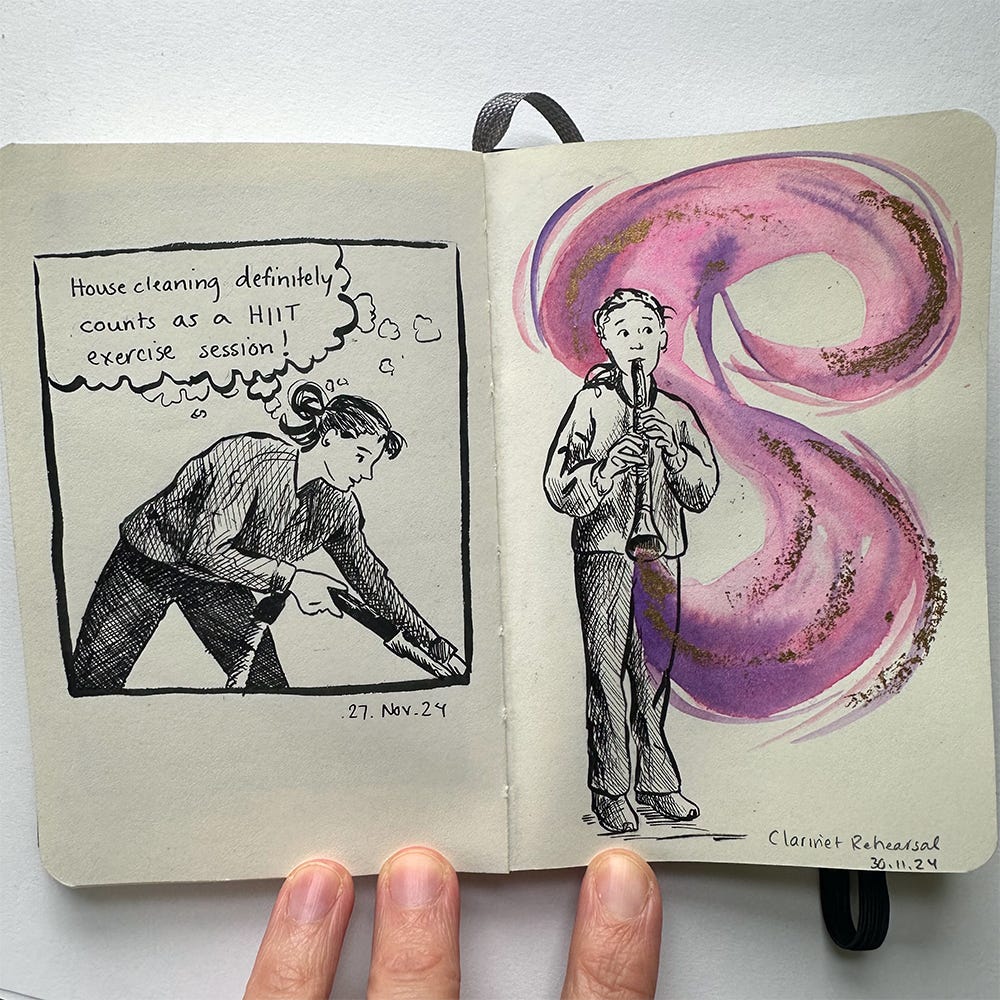 House cleaning definitely
counts as a HIIT
exercise session!
.27. Nov.24
Clarinet Rehearsal
30.11.24